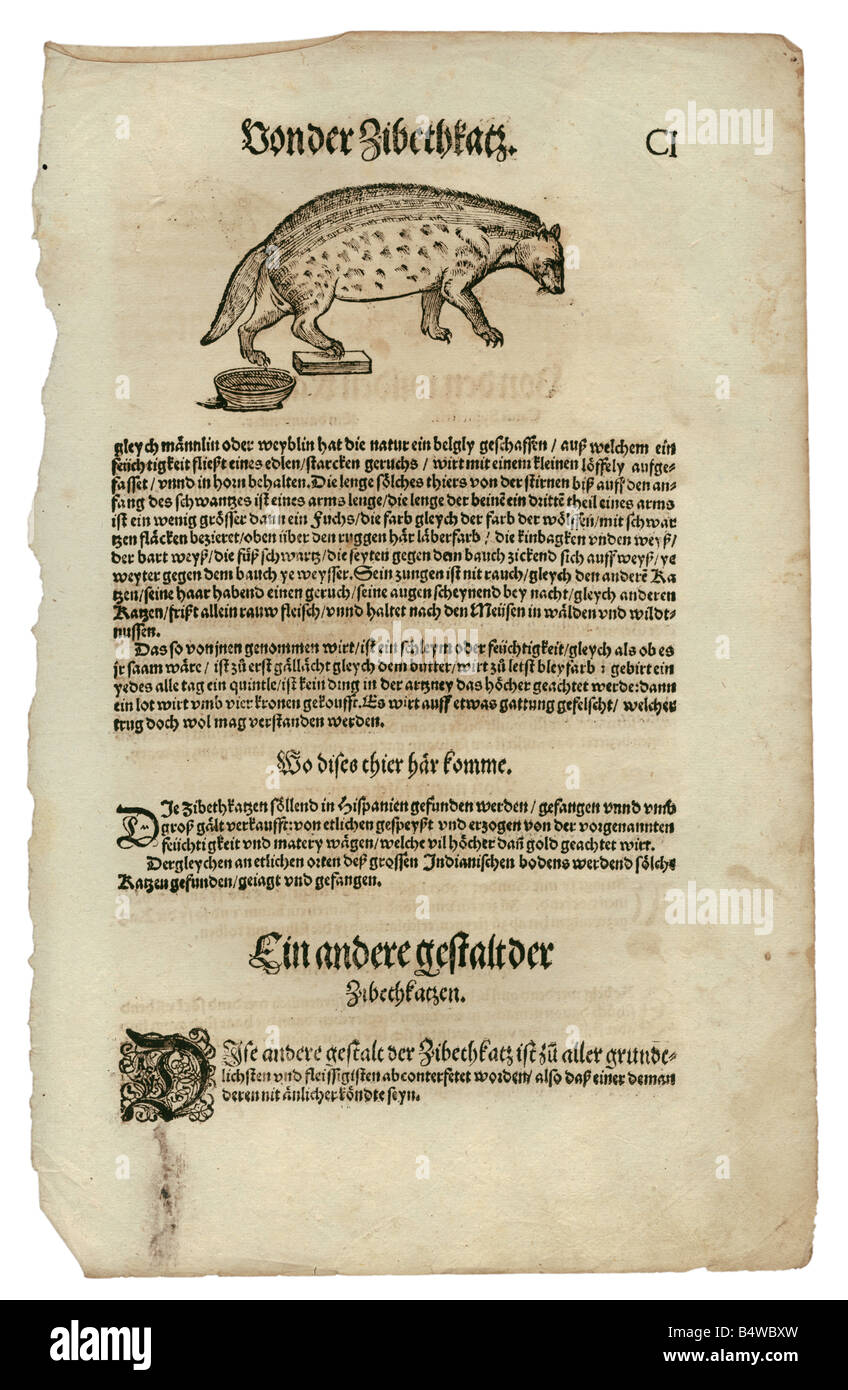 Von der Zibethkatz.
CI
gleych männlin oder weyblin hat die natur ein belgly geschaffen / auß welchem ein
feüchtigkeit fließt eines edlen/starcken geruchs / wirt mit einem kleinen löffely aufge-
fasset / vnnd in horn behalten. Die lenge sölches thiers von der stirnen biß auff den an-
fang des schwantzes ist eines arms lenge/die lenge der beinē ein drittē theil eines arms
ist ein wenig grösser dann ein Fuchs/die farb gleych der farb der wölffen/mit schwar
tzen fläcken bezieret/oben über den ruggen här läberfarb / die kinbagken vnden weyß/
der bart weyß/die füß schwartz/die seyten gegen dem bauch zickend sich auff weyß/ye
weyter gegen dem bauch ye weysser. Sein zungen ist nit rauch/gleych den anderē Ka
tzen/seine haar habend einen geruch/seine augen scheynend bey nacht/gleych anderen
Katzen/frißt allein rauw fleisch/vnnd haltet nach den Meüsen in wälden vnd wildt-
nussen.
Das so von jnen genommen wirt/ist ein schleym oder feüchtigkeit/gleych als ob es
jr saam wäre / ist zů erst gällächt gleych dem butter/wirt zů letst bleyfarb : gebirt ein
yedes alle tag ein quintle/ist kein ding in der artzney das höcher geachtet werde: dann
ein lot wirt vmb vier kronen gekoufft. Es wirt auff etwas gattung gefelscht/ welches
trug doch wol mag verstanden werden.
Wo dises thier här komme.
DIe Zibethkatzen söllend in Hispanien gefunden werden/ gefangen vnnd vmb
groß gält verkaufft: von etlichen gespeyßt vnd erzogen von der vorgenannten
feüchtigkeit vnd matery wägen/welche vil höcher dañ gold geachtet wirt.
Dergleychen an etlichen orten deß grossen Indianischen bodens werdend sölche
Katzen gefunden/geiagt vnd gefangen.
Ein andere gestalt der
Zibethkatzen.
DIse andere gestalt der Zibethkatz ist zů aller grunde-
lichsten vnd fleissigisten abconterfetet worden/ also daß einer dem an
deren nit änlicher köndte seyn.
a
alamy
alamy
Image ID: B4WBXW
www.alamy.com